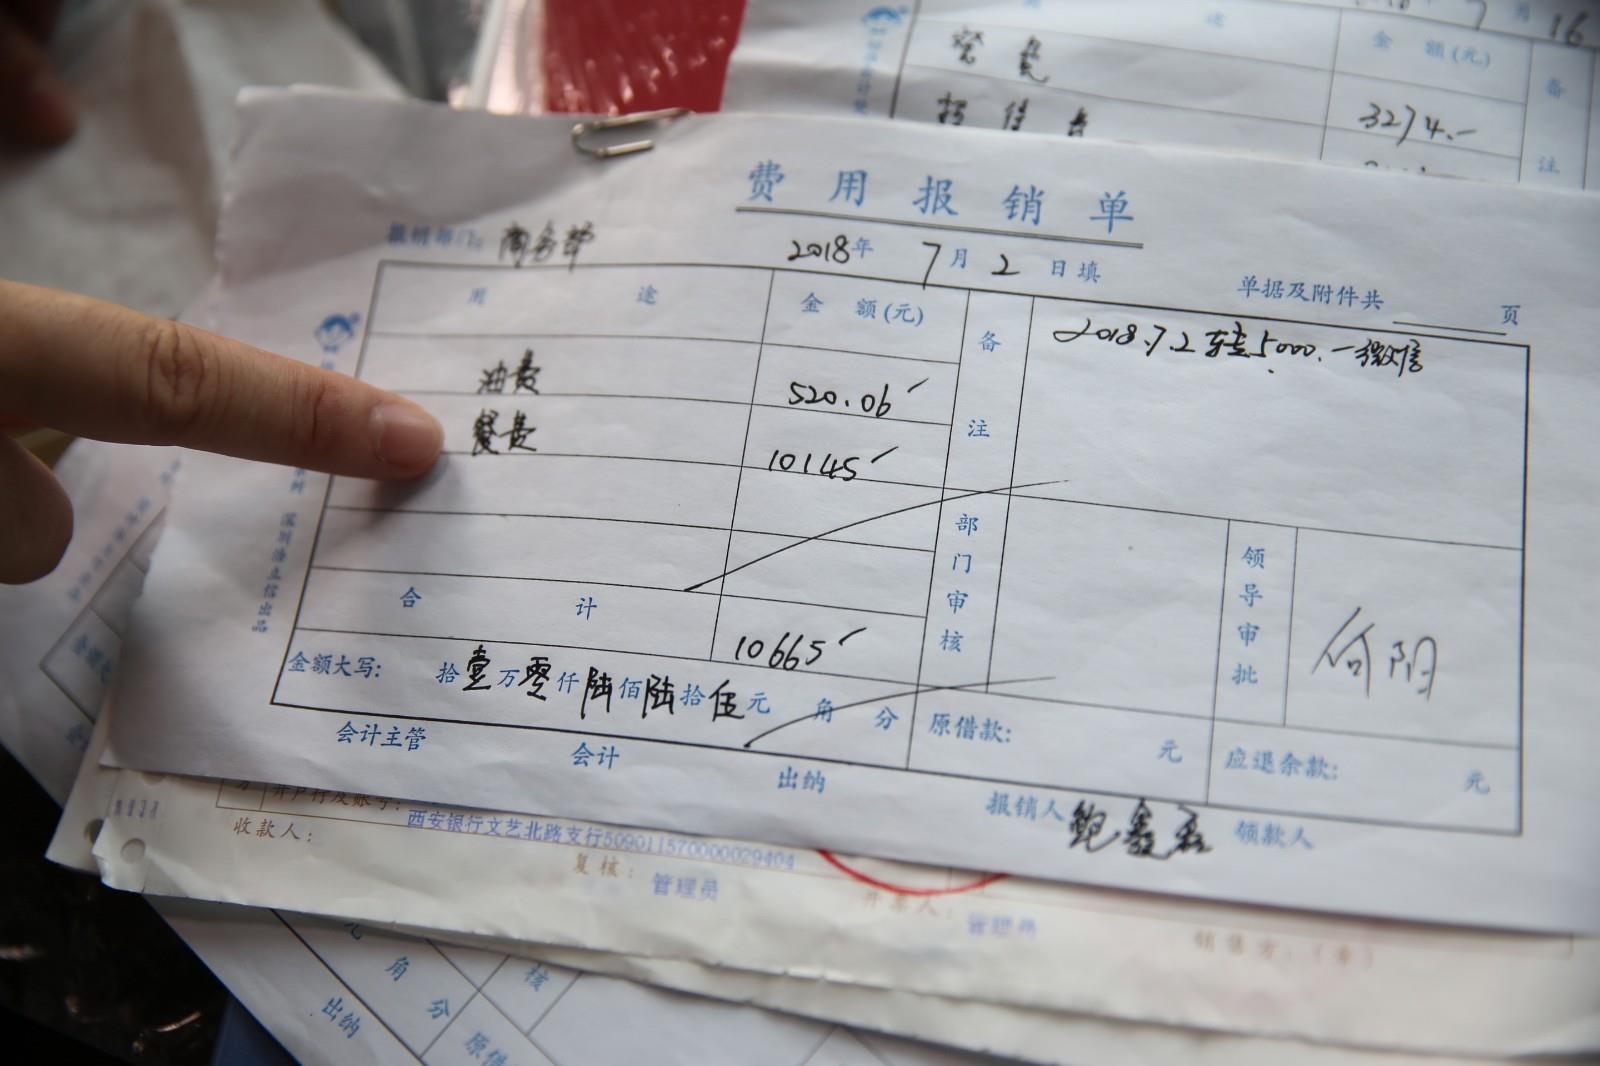 月 16
途 金 额(元) 备
餐 费 3274.-
注
费用报销单
报销部门: 商务部 2018年 7月 2日填 单据及附件共 页
用 途 金 额(元) 备 注 2018.7.2 转5000.- 微信
油费 520.06
餐费 10145
部门审核 领导审批 向阳
合 计 10665
金额大写: 拾壹万零仟陆佰陆拾伍元 角 分 原借款: 元 应退余款: 元
会计主管 会计 出纳 报销人 领款人
深圳浩立信出品
开户行及账号: 西安银行文艺北路支行509011570000029404
收款人: 复核: 管理员 开票人: 管理员 销售方:(章)
角 分 核
出纳 原借